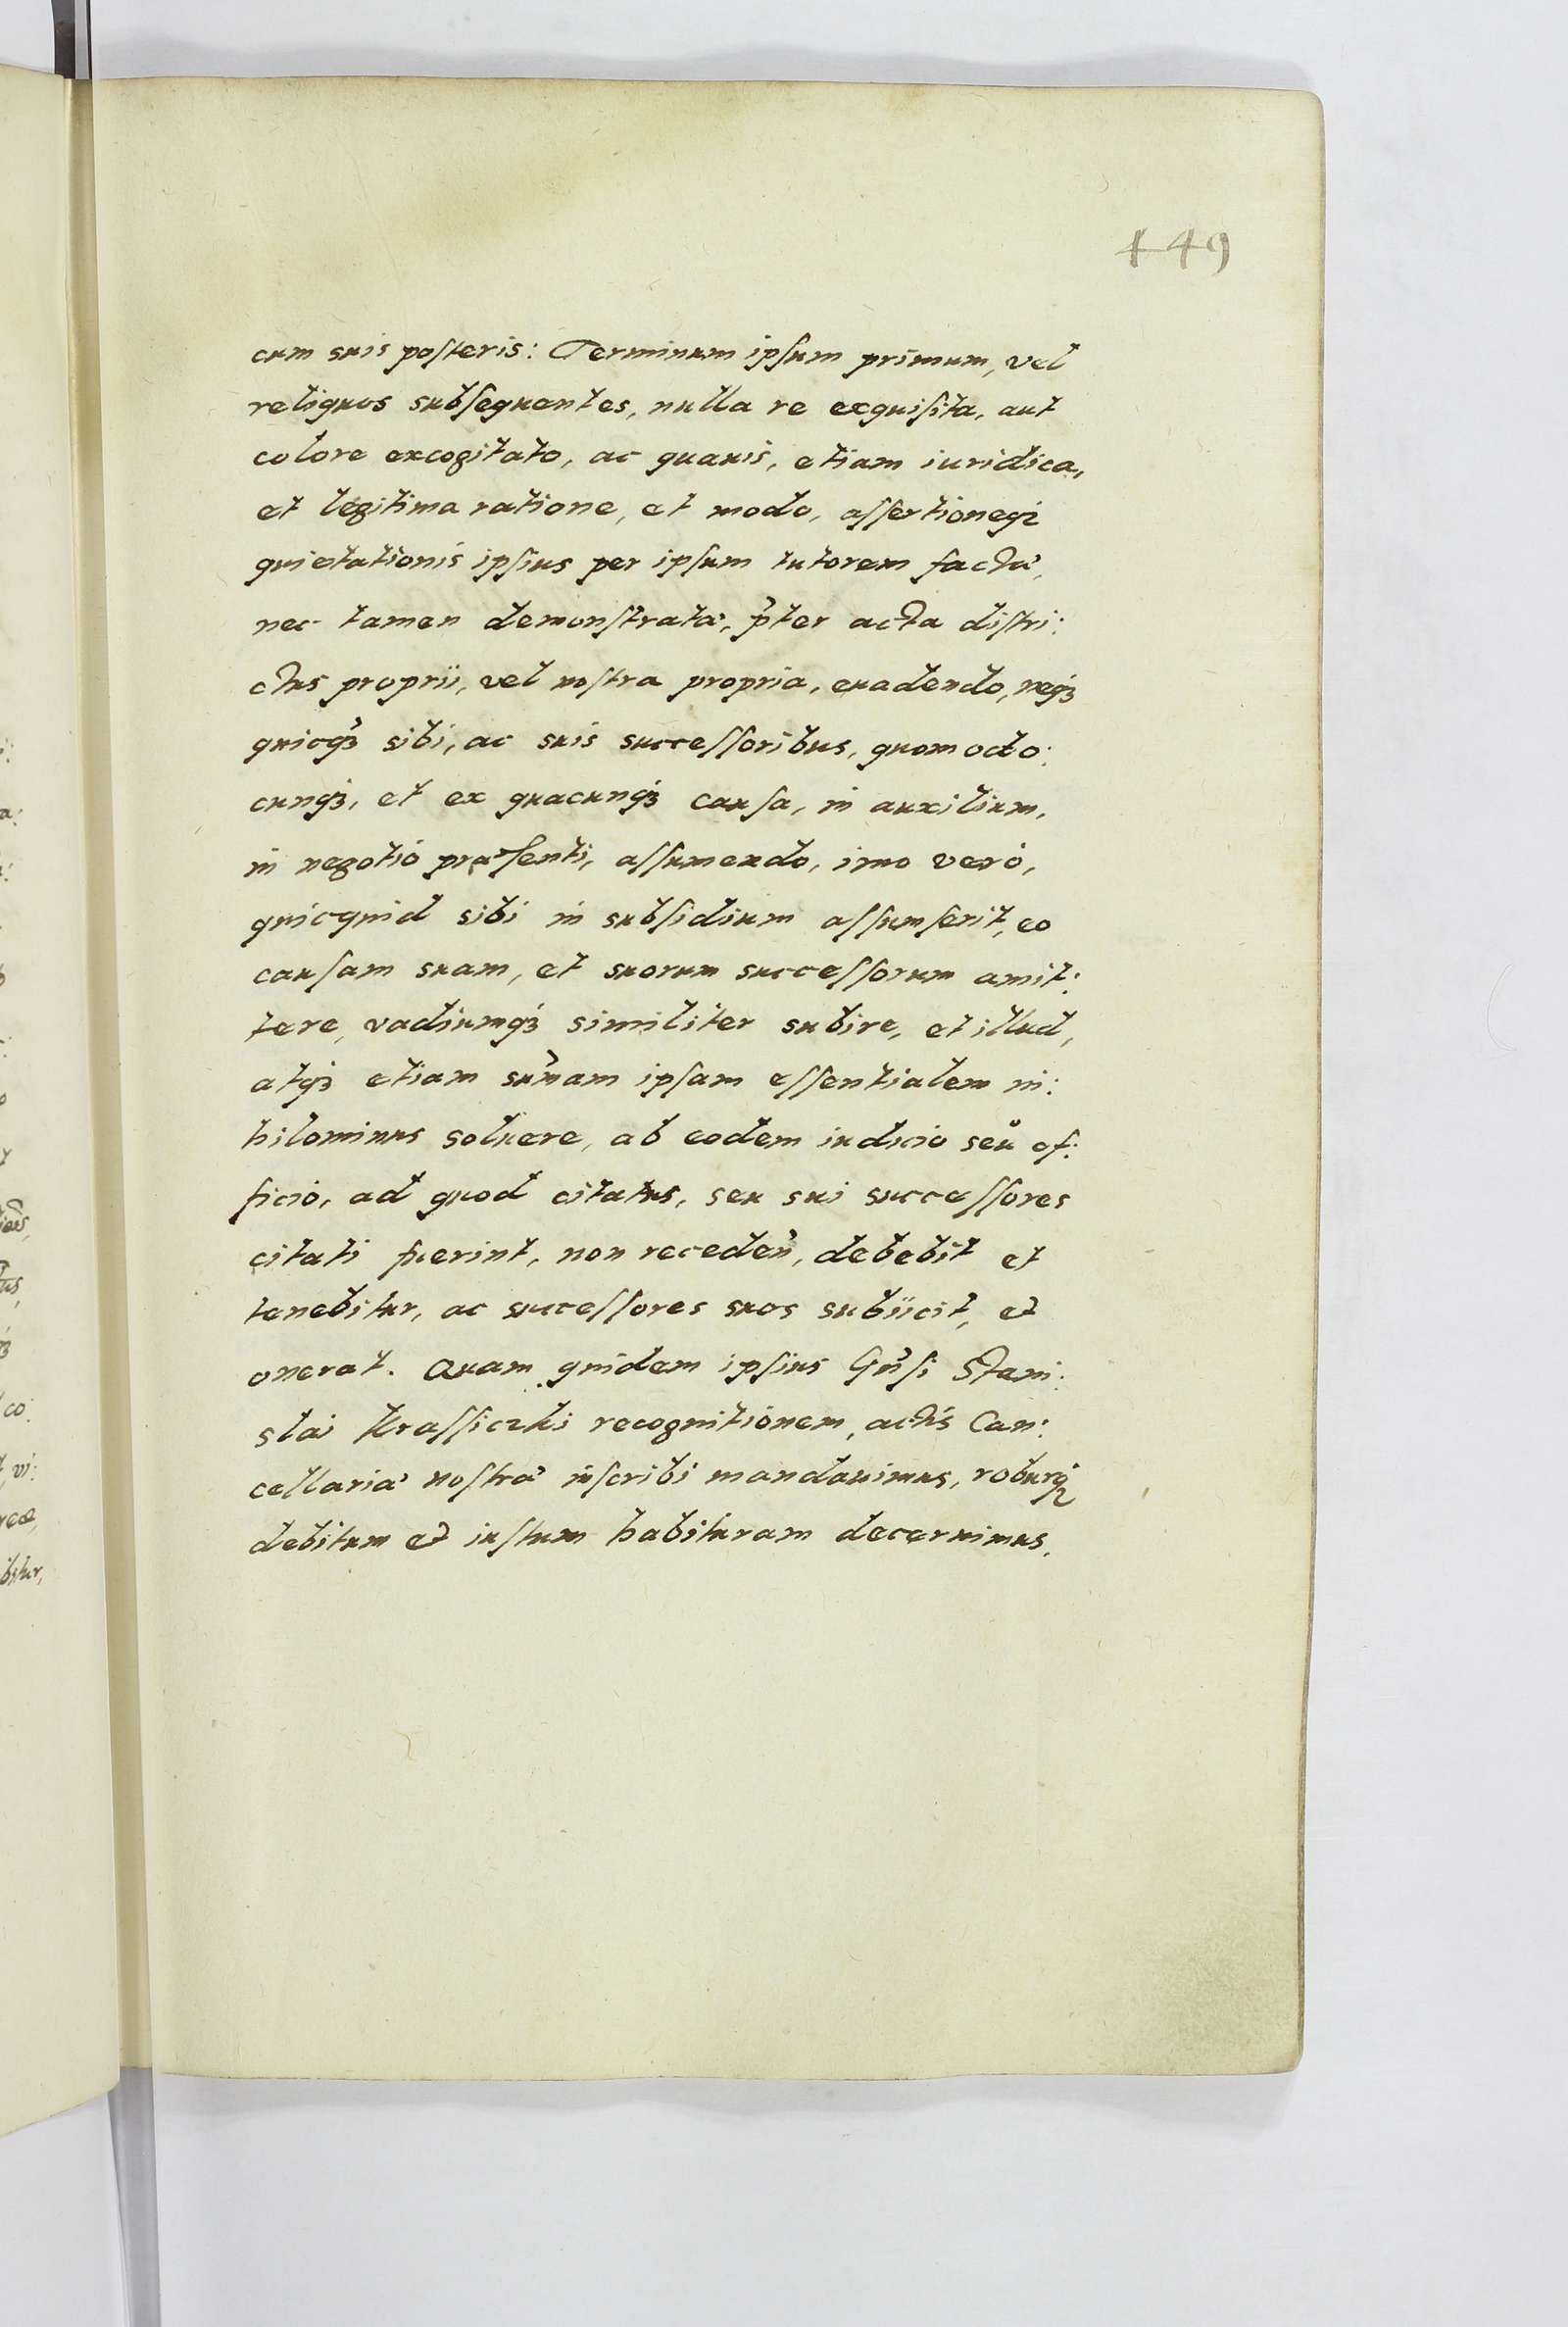 149
cum suis posteris: Terminum ipsum primum, vel
reliquos subsequentes, nulla re exquisita, aut
colore excogitato, ac quauis, etiam iuridica,
et legitima ratione, et modo, assertioneq₃
quietationis ipsius per ipsum tutorem factæ,
nec tamen demonstratæ, p̃ter acta distri:
ctus proprii, vel nostra propria, euadendo, neq₃
quicq₃ sibi, ac suis successoribus, quomodo:
cunq₃, et ex quacunq₃ causa, in auxilium,
in negotio præsenti, assumendo, imo verò,
quicquid sibi in subsidium assumserit, eo
causam suam, et suorum successorum amit:
tere, vadiumq₃ similiter subire, et illud,
atq₃ etiam sum̃am ipsam essentialem ni:
hilominus soluere, ab eodem iudicio seu of:
ficio, ad quod citatus, seu sui successores
citati fuerint, non receden̄, debebit et
tenebitur, ac successores suos subiicit, et
onerat. Quam quidem ipsius Gñsi Stani:
slai Krassiczki recognitionem, actis Can:
cellariæ nostræ inscribi mandauimus, roburq₃
debitum et iustum habituram decernimus.